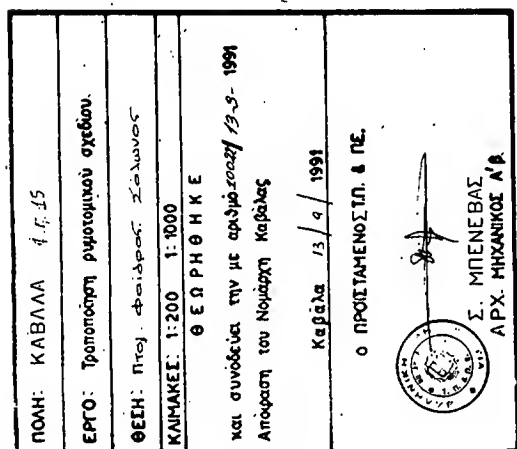 ΠΟΛΗ: ΚΑΒΑΛΑ 1 Γ. 15
ΕΡΓΟ: Τροποποίηση ρυμοτομικού σχεδίου.
ΘΕΣΗ: Πτολ. Φαίδρας Σόλωνος
ΚΛΙΜΑΚΕΣ: 1:200 1:1000
ΘΕΩΡΗΘΗΚΕ
και συνοδεύει την με αριθμό 13-9- 1991
Απόφαση του Νομάρχη Καβάλας
Καβάλα 13/9/ 1991
Ο ΠΡΟΙΣΤΑΜΕΝΟΣ Τ.Π. & ΠΕ.
Σ. ΜΠΕΝΕΒΑΣ
ΑΡΧ. ΜΗΧΑΝΙΚΟΣ Α'Β.